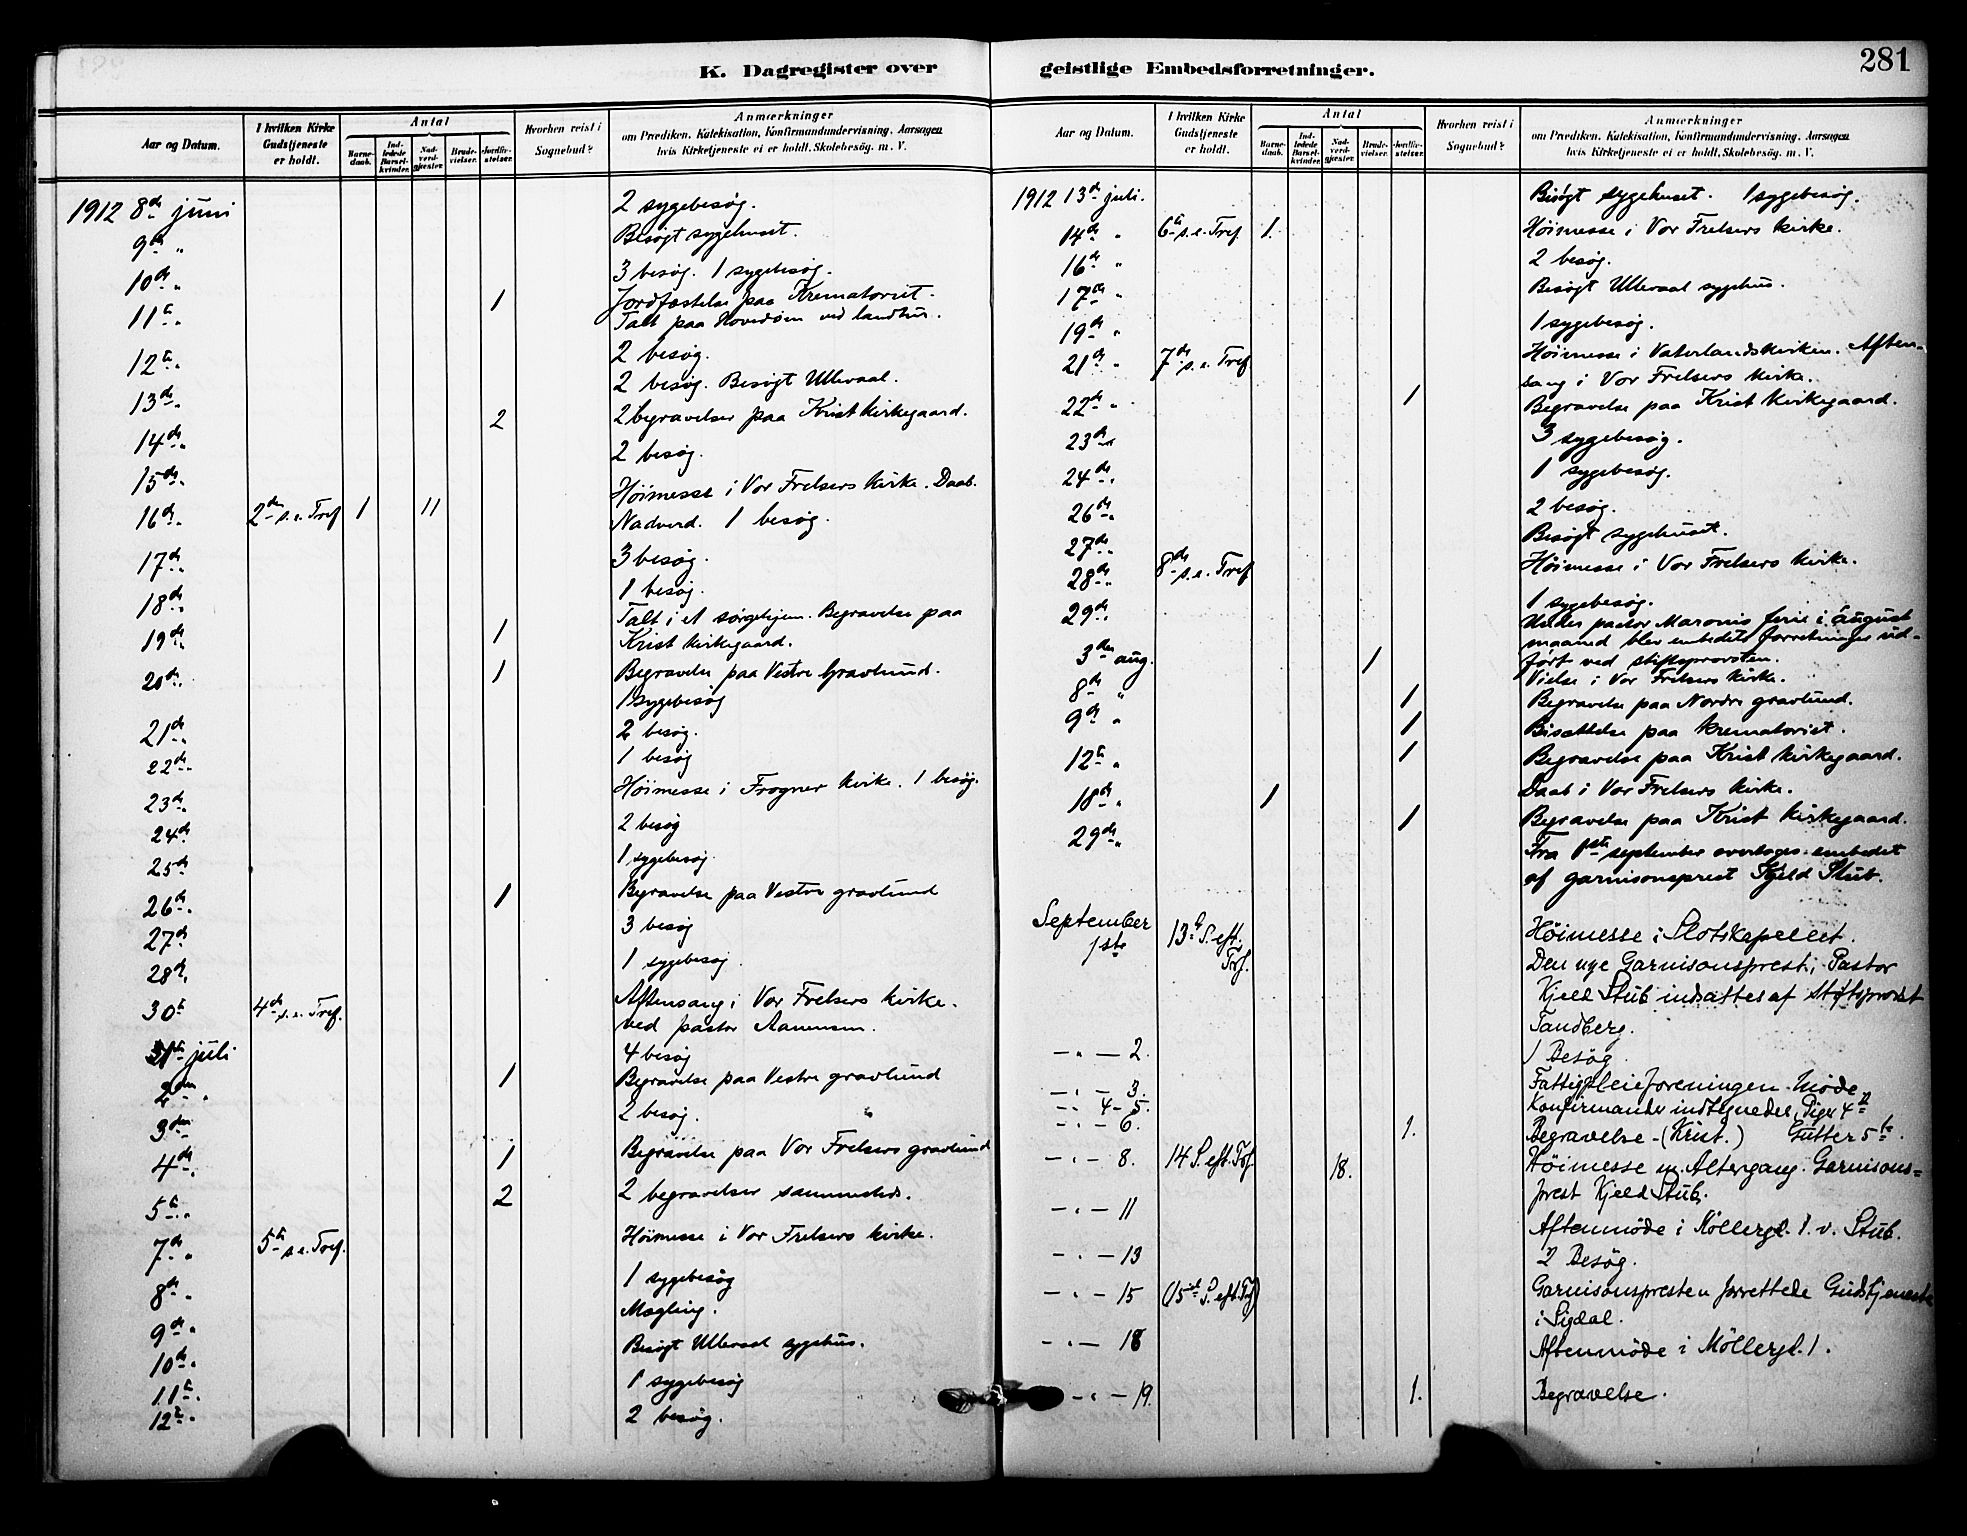 281
K. Dagregister over geistlige Embedsforretninger.
Aar og Datum. I hvilken Kirke Gudstjeneste er holdt. Antal Barnedaab. Indledede Barselkvinder. Nadverdgjester. Brudevielser. Jordfæstelser. Hvorhen reist i Sognebud? Anmærkninger om Prædiken, Katekisation, Konfirmandundervisning, Aarsagen hvis Kirketjeneste ei er holdt, Skolebesög. m. V.
1912 8de juni 2 sygebesøg.
9de " Besøgt sygehuset.
10de " 3 besøg. 1 sygebesøg.
11te " 1 Jordfæstelse paa Krematoriet.
Talt paa Hovedøen ved landhus.
12te " 2 besøg.
13de " 2 besøg. Besøgt Ullevaal.
14de " 2 2 begravelser paa Krist kirkegaard.
15de " 2 besøg.
16de " 2den s. e. Tref 1 11 Höimesse i Vor Frelsers kirke. Daab.
Nadverd. 1 besøg.
17de " 3 besøg.
18de " 1 besøg.
19de " 1 Talt i et sørgehjem. Begravelse paa
Krist kirkegaard.
20de " 1 Begravelse paa Vestre Gravlund.
1 sygebesøg
21de " 2 besøg.
22de " 1 besøg
23de " Höimesse i Frogner kirke. 1 besøg.
24de 2 besøg
25de 1 sygebesøg.
26de " 1 Begravelse paa Vestre gravlund
27de 3 besøg
28de 1 sygebesøg.
30te 4de s. e. Tref. Aftensang i Vor Frelsers kirke.
ved pastor Aanensen.
1ste juli 4 besøg
2den " 1 Begravelse paa Vestre gravlund
3den 2 besøg.
4de " 1 Begravelse paa Vor Frelsers gravlund
5te " 2 2 begravelser sammesteds.
7de " 5te s. e. Tref. Höimesse i Vor Frelsers kirke.
8de " 1 sygebesøg
9de " Mægling.
10de " Besøgt Ullevaal sygehus.
11te " 1 sygebesøg
12te " 2 besøg.
Aar og Datum. I hvilken Kirke Gudstjeneste er holdt. Antal Barnedaab. Indledede Barselkvinder. Nadverdgjester. Brudevielser. Jordfæstelser. Hvorhen reist i Sognebud? Anmærkninger om Prædiken, Katekisation, Konfirmandundervisning, Aarsagen hvis Kirketjeneste ei er holdt, Skolebesög. m. V.
1912 13de juli. Besøgt sygehuset. 1 sygebesøg.
14de " 6te s. e. Tref 1. Höimesse i Vor Frelsers kirke.
16de " 2 besøg.
17de " Besøgt Ullevaal sygehus.
19de " 1 sygebesøg.
21de " 7de s. e. Tref Höimesse i Vaterlandskirken. Aften-
sang i Vor Frelsers kirke.
22de " 1 Begravelse paa Krist kirkegaard.
23de " 3 sygebesøg.
24de " 1 sygebesøg.
26de " 2 besøg.
27de " Besøgt sygehuset.
28de " 8de s. e. Tref Höimesse i Vor Frelsers kirke.
29de " 1 sygebesøg.
Under pastor Maronis ferie i august
maaned blev embedets forretninger ud-
ført ved stiftsprovsten.
3die aug. 1 Vielse i Vor Frelsers kirke.
8de " 1 Begravelse paa Nordre gravlund.
9de " 1 Bisættelse paa krematoriet.
12te " 1 Begravelse paa Krist kirkegaard.
18de " 1 Daab i Vor Frelsers kirke.
29de " 1 Begravelse paa Krist kirkegaard.
Fra 1ste september overtoges embedet
af garnisonsprest Kjeld Stub.
September
1ste 13de S. eft. Tref. Höimesse i Slotskapellet.
Den nye Garnisonsprest, Pastor
Kjeld Stub indsattes af Stiftsprovst
Tandberg.
— " — 2. 1 Besøg.
— " — 3. Fattigpleieforeningen. Møde
— " 4 - 5. Konfirmander indtegnedes, Piger 4de
— " — 6. 1. Begravelse - (Krist.) Gutter 5te.
— " — 8. 14 S. eft. Tref. 18. Höimesse m. Altergang. Garnisons-
prest Kjeld Stub.
— " — 11 Aftenmöde i Möllergt. 1. v. Stub.
— " — 13 2 Besøg.
— " — 15 (15de S. eft. Tref) Garnisonspresten forrettede Gudstjeneste
i Sigdal.
— " — 18 Aftenmöde i Möllergt. 1.
— " — 19. 1. Begravelse.